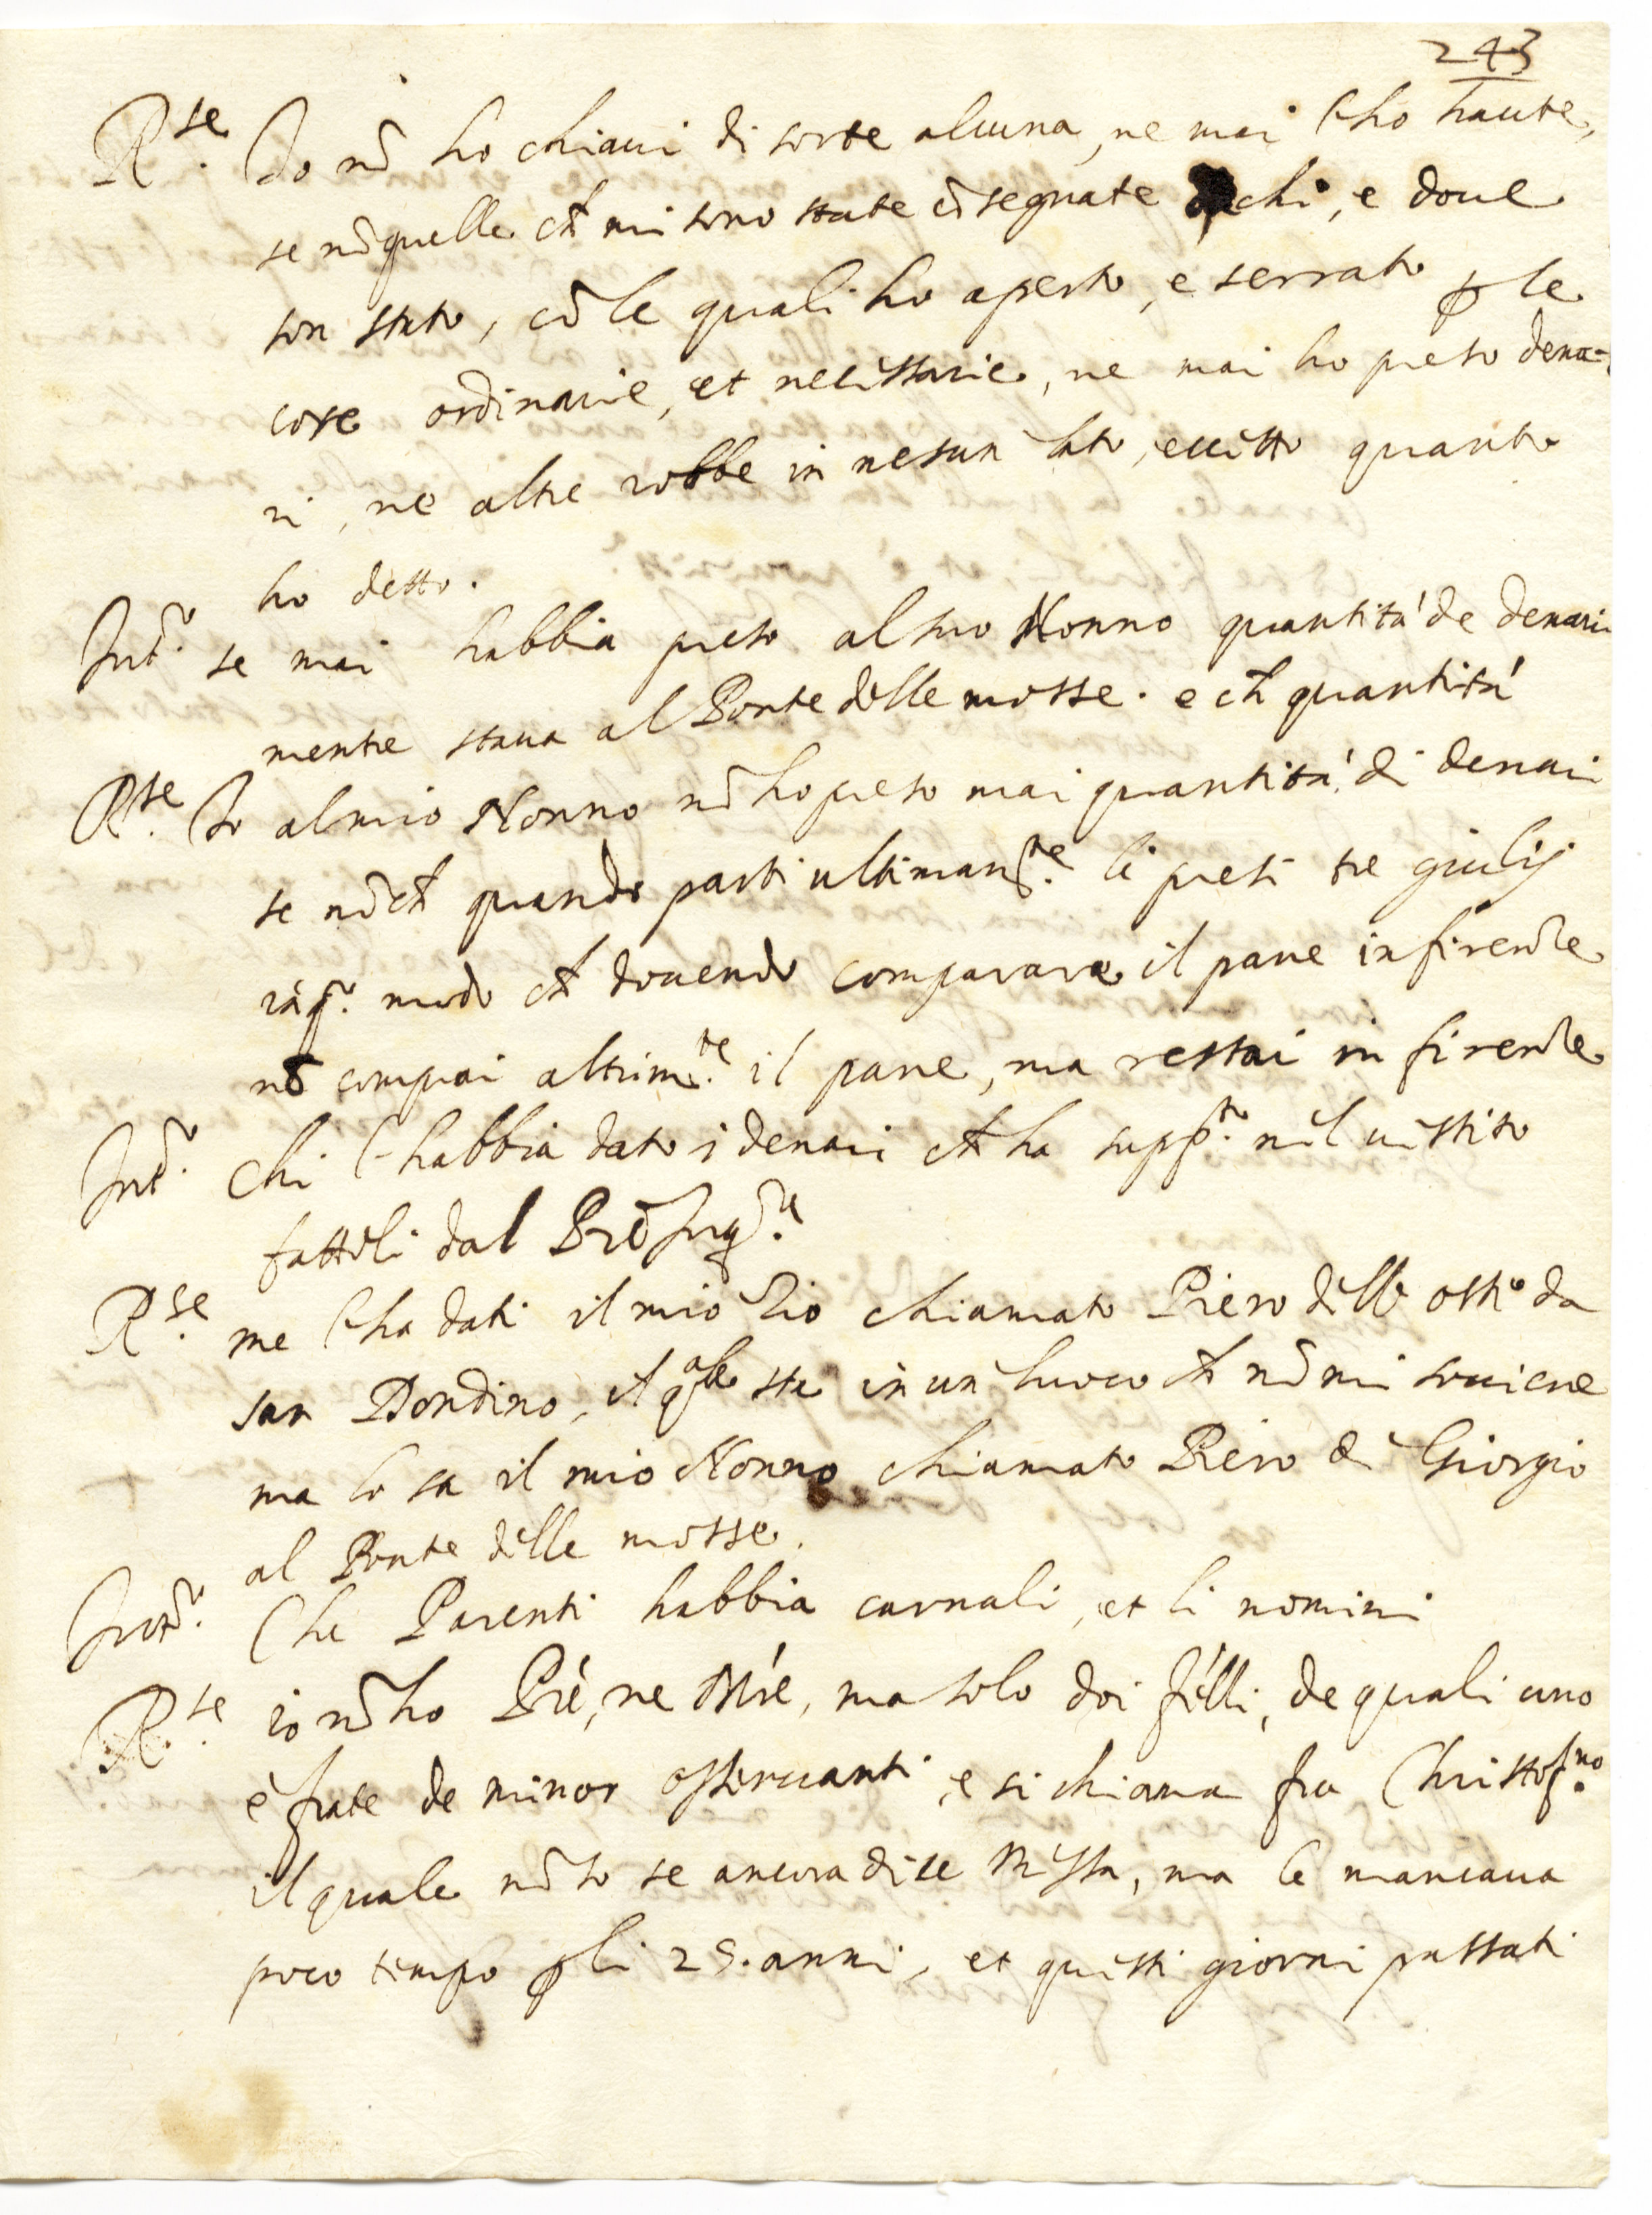 243
R.se Io nõ ho chiaui di sorte alcuna, ne mai l'ho haute,
se nõ quelle ch̃ mi sono state cõsegnate chi, e doue
son stato, cõ le quali ho aperto, e serrato ꝑ le
cose ordinarie, et necessarie, ne mai ho preso dena-
ri, ne altre robbe in nesun lato, eccetto quanto
ho detto.
Int.o se mai habbia preso al suo Nonno quantità de denari
mentre staua al Ponte delle mosse. e ch̃ quantità
R.se Io al mio Nonno nõ ho preso mai quantità di denari
se nõ ch̃ quando parti ultimam.te li presi tre giulij
in q.o modo ch̃ douendo comparare il pane in firenze
nõ comprai altrim.te il pane, ma restai in firenze
Int.o Chi l'habbia dato i denari ch̃ ha supp.to nel uestito
fattoli dal Prẽ Inq.re
R.se me l'ha dati il mio Zio chiamato Piero dell' oste da
san Dondino, il q̃le sta in un luoco ch̃ nõ mi souiene
ma lo sa il mio Nonno chiamato Piero di Giorgio
al Ponte delle mosse.
Int.o Che Parenti habbia carnali, et li nomini
R.se io nõ ho Prẽ, ne Mrẽ, ma solo doi fr̃elli, de quali uno
è frate de minor osseruanti, e si chiama fra Christof.no
il quale nõ so se ancora dice Messa, ma le mancaua
poco tempo ꝑ li 25. anni, et questi giorni passati